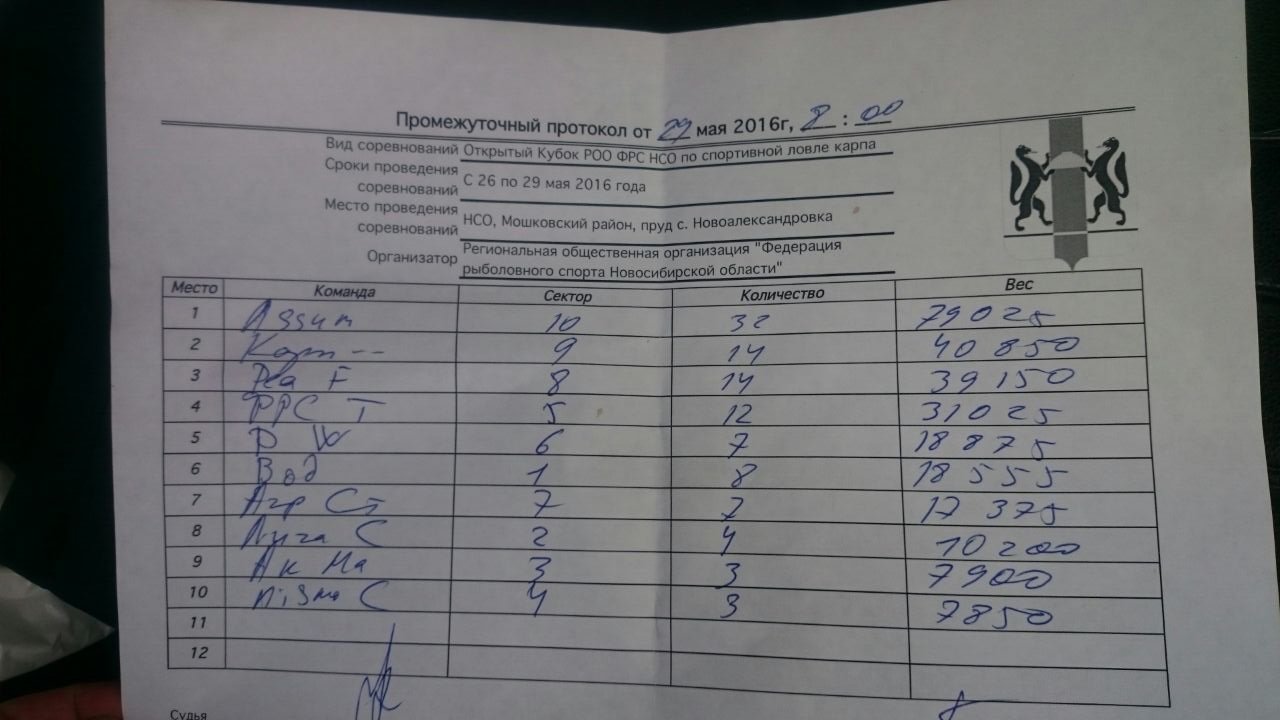 Промежуточный протокол от 29 мая 2016г, 8 : 00
Вид соревнований Открытый Кубок РОО ФРС НСО по спортивной ловле карпа
Сроки проведения соревнований С 26 по 29 мая 2016 года
Место проведения соревнований НСО, Мошковский район, пруд с. Новоалександровка
Организатор Региональная общественная организация "Федерация
рыболовного спорта Новосибирской области"
Место Команда Сектор Количество Вес
1 Assum 10 32 79025
2 Карп -- 9 14 40 850
3 Реа F 8 14 39 150
4 РРС Т 5 12 31025
5 Р W 6 7 18 875
6 Вод 1 8 18 555
7 Агр Ст 7 7 17 375
8 Лига С 2 4 10 200
9 Ак Ма 3 3 7900
10 С 4 3 7850
11
12
Судья